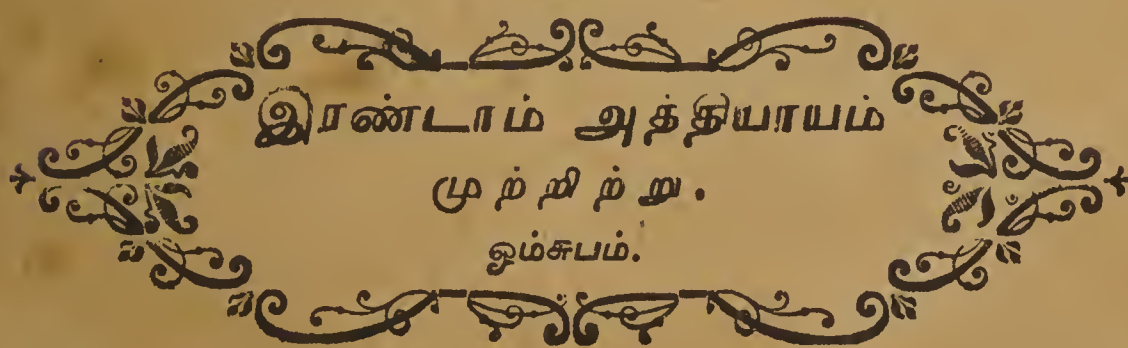 இரண்டாம் அத்தியாயம்
முற்றிற்று.
ஓம்சுபம்.